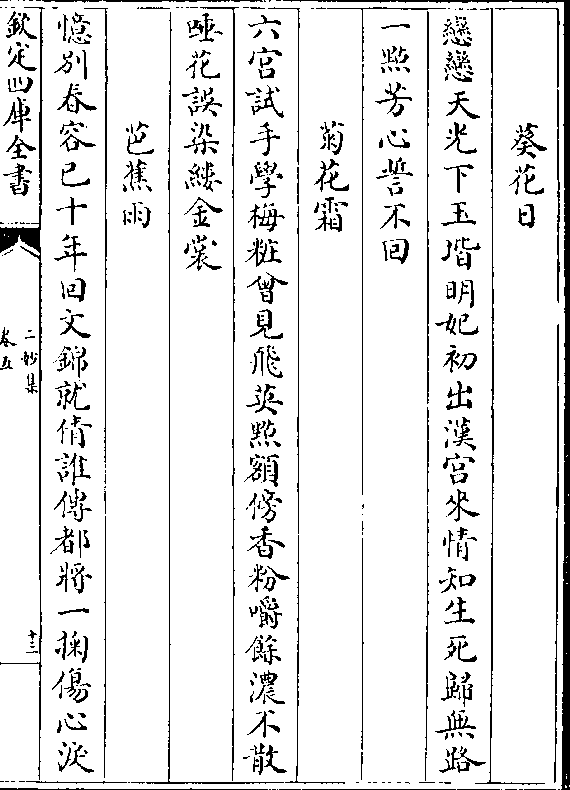 葵花日
戀戀天光下玉堦明妃初出漢宫來情知生死歸無路
一㸃芳心誓不回
菊花霜
六宫試手學梅粧曾見飛英㸃額傍香粉嚼餘濃不散
唾花誤染縷金裳
芭蕉雨
憶别春容已十年回文錦就倩誰傳都將一掬傷心淚
欽定四庫全書
二妙集
卷五
十三